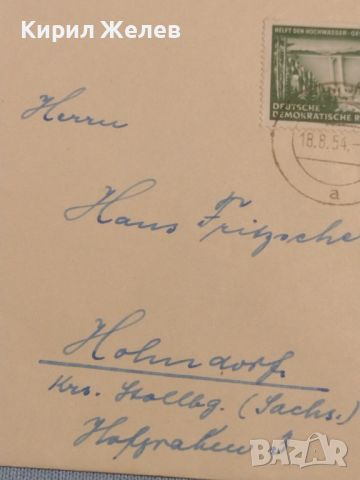 Кирил Желев
HELFT DEN HOCHWASSER-GE
DEUTSCHE
DEMOKRATISCHE R
18.8.54.-
a
Herrn
Hans Fritzsche
Hohndorf
Krs. Stollbg. (Sachs.)
Hofgraben
bazar